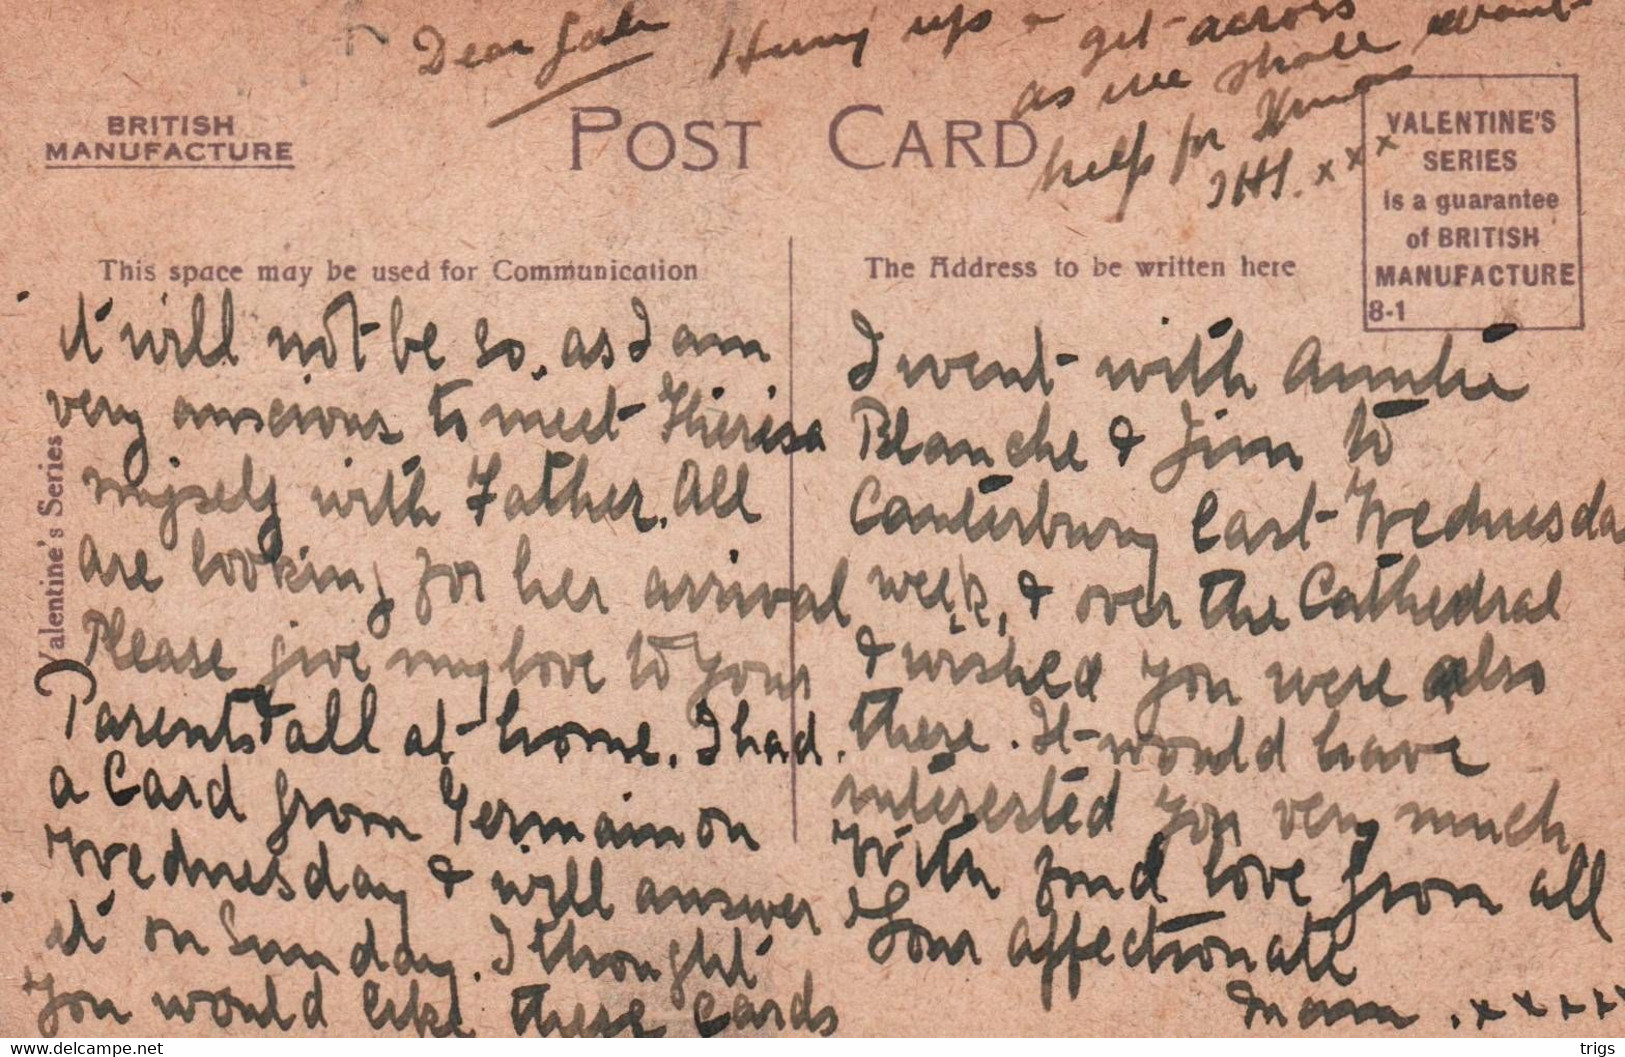 Dear Hurry up & get across
as we shall want
help for Xmas
xxx
BRITISH
MANUFACTURE
POST CARD
VALENTINE'S
SERIES
is a guarantee
of BRITISH
MANUFACTURE
8-1
This space may be used for Communication
The Address to be written here
Valentine's Series
it will not be so. as I am
very anscious to meet Theresa
myself with Father. All
are looking for her arrival
Please give my love to your
Parents & all at home. I had
a Card from Germain on
Wednesday & will answer
it on Sunday. I thought
you would like these Cards
I went with Auntie
Blanche & Jim to
Canterbury Last Wednesday
week, & over the Cathedral
& wished you were also
there. It would have
interested you very much
With fond love from all
Your affectionate
Mam. xxxxx
delcampe.net
trigs